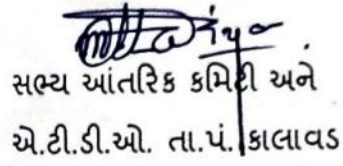 સભ્ય આંતરિક કમિટી અને
એ.ટી.ડી.ઓ. તા.પં. કાલાવડ